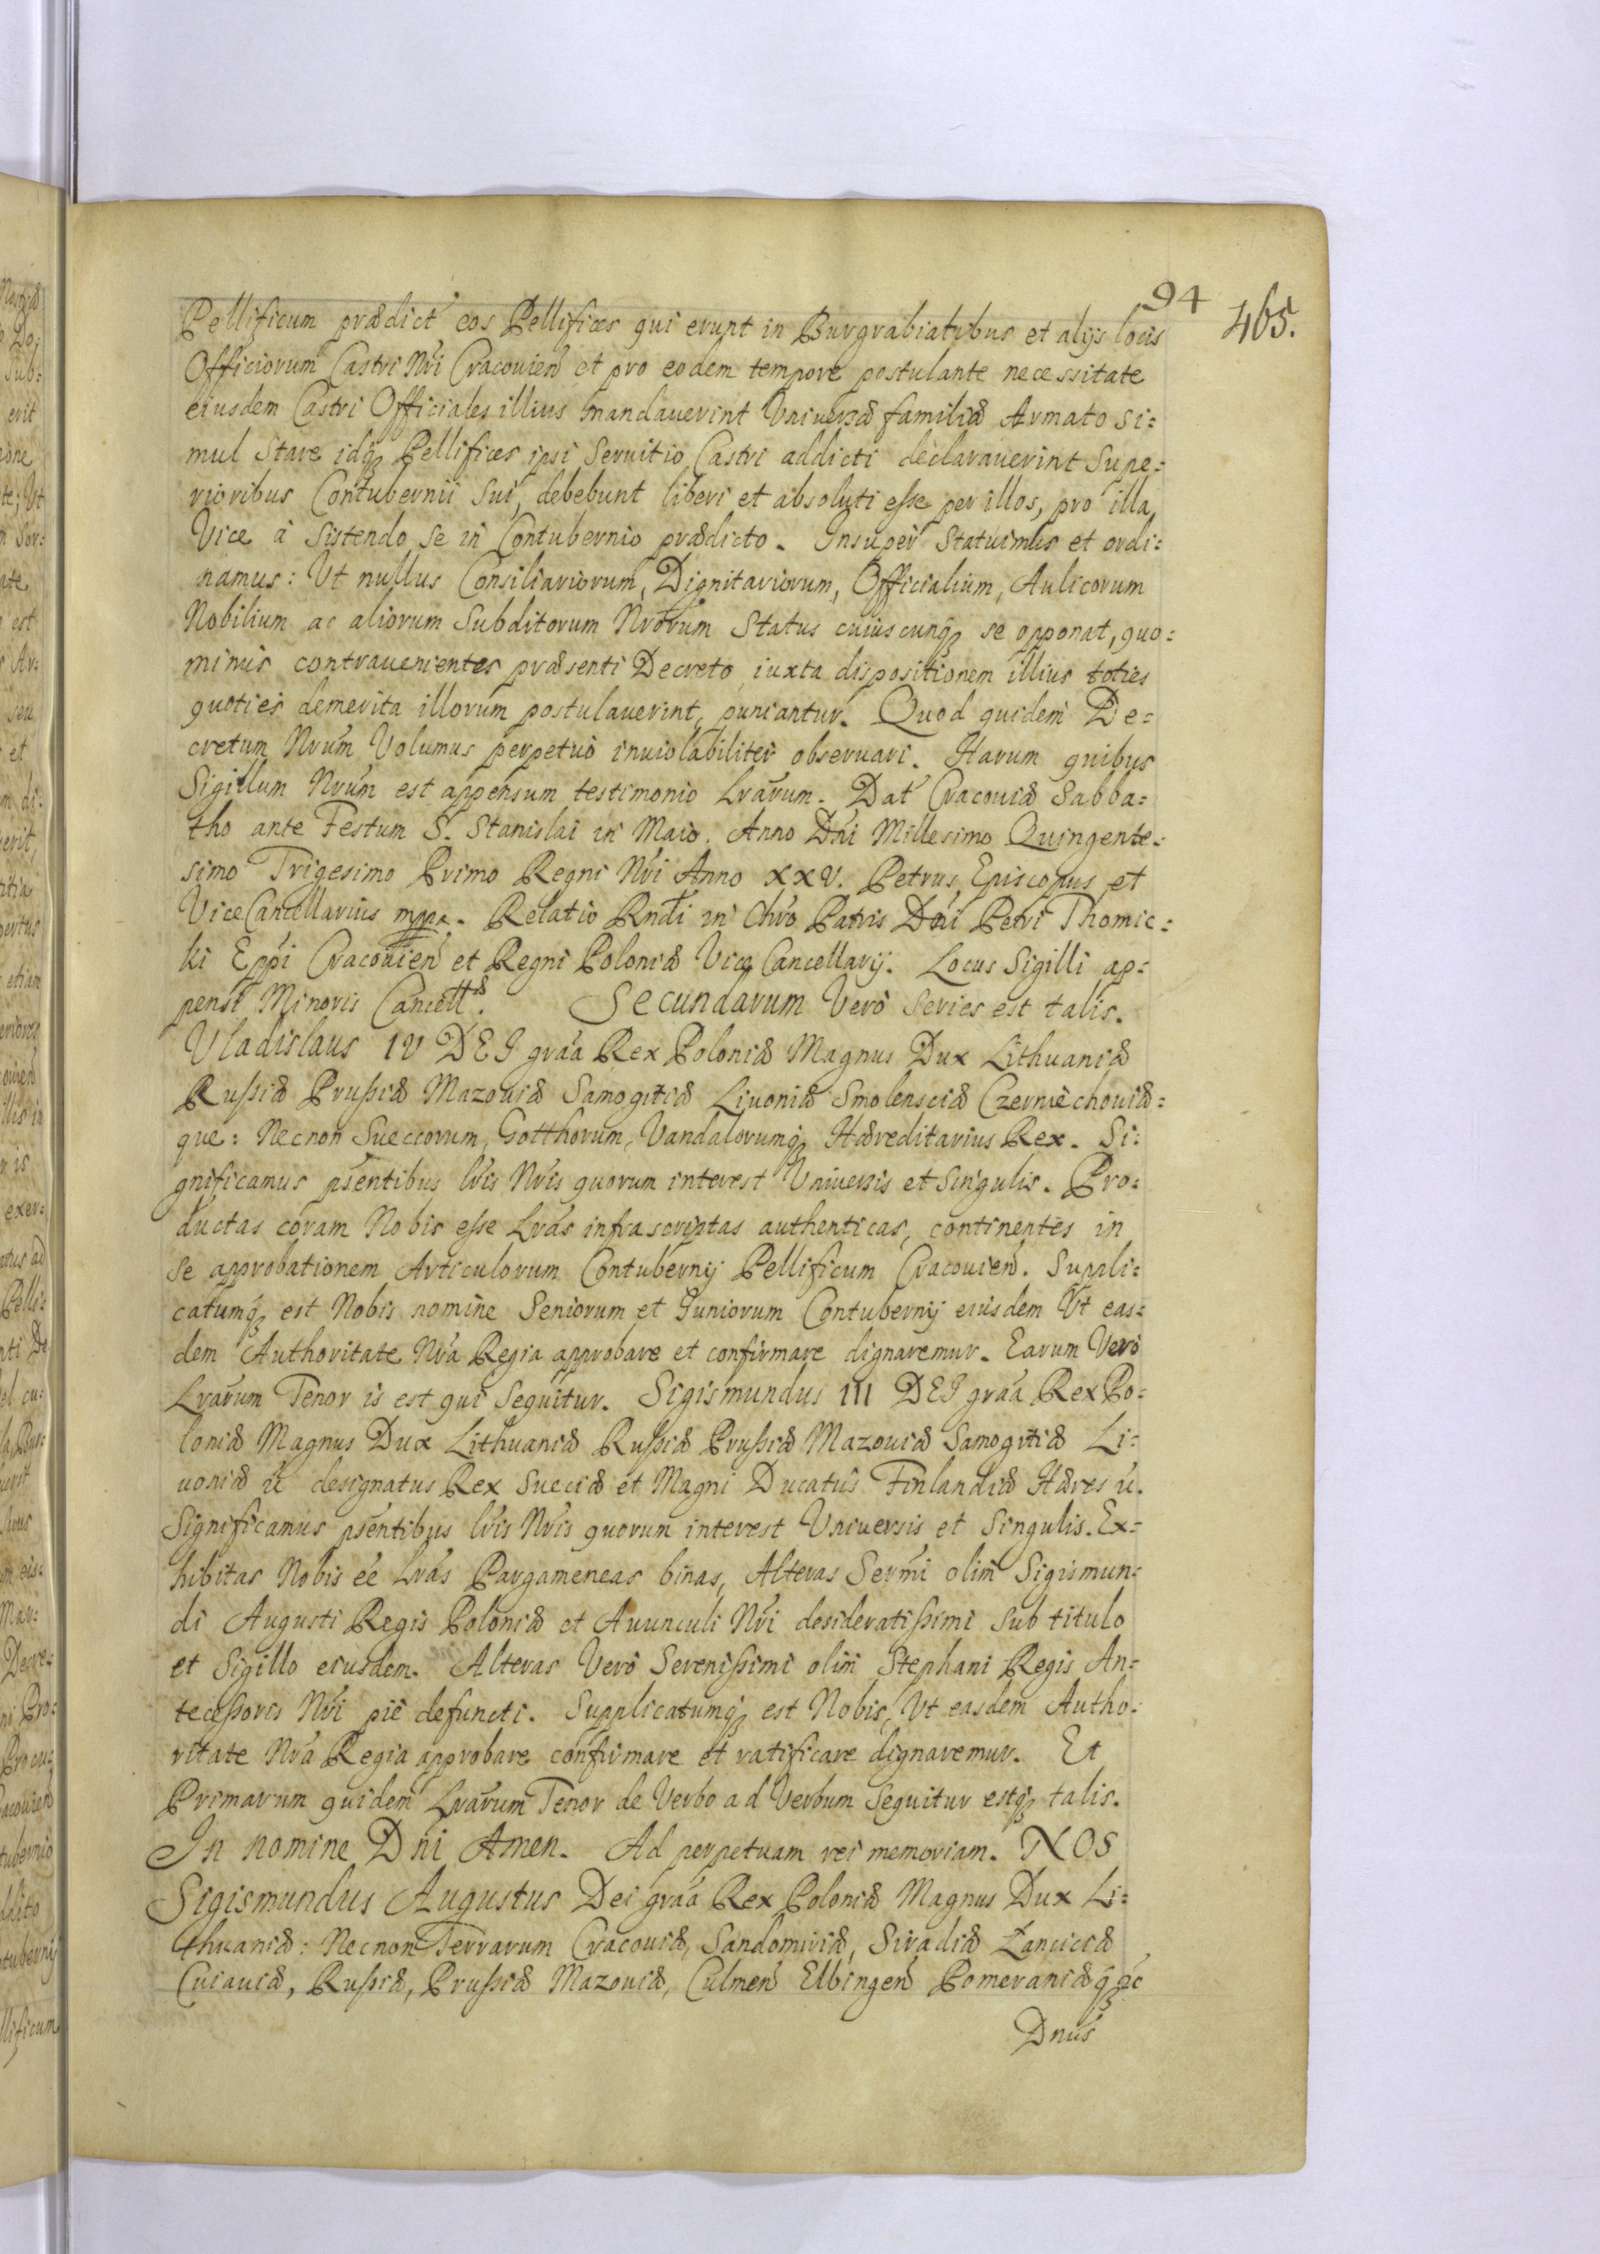 94
465.
Pellificum prædict eos Pellifices qui erunt in Burgrabiatybus et alijs locis
Officiorum Castri Nri Cracouien et pro eodem tempore postulante necessitate
eiusdem Castri Officiales illius mandauerint Vniuersæ familiæ Armato si=
mul Stare idq Pellifices ipsi Seruitio Castri addicti declarauerint Supe=
rioribus Contubernii Sui, debebunt liberi et absoluti esse per illos, pro illa
Vice à Sistendo se in Contubernio prædicto. Insuper Statuimus et ordi=
namus: Vt nullus Consiliariorum, Dignitariorum, Officialium, Aulicorum
Nobilium ac aliorum Subditorum Nrorum Status cuiuscunq se opponat, quo=
minus contrauenientes præsenti Decreto iuxta dispositionem illius toties
quoties demerita illorum postulauerint, puniantur. Quod quidem De=
cretum Nrum Volumus perpetuò inuiolabiliter obseruari. Harum quibus
Sigillum Nrum est appensum testimonio Lrarum. Dat Cracouiæ Sabba=
tho ante Festum S. Stanislai in Maio. Anno Dni Millesimo Quingente=
simo Trigesimo Primo Regni Nri Anno XXV. Petrus Episcopus et
ViceCancellarius mppa. Relatio Rndi in Chro Patris Dni Petri Thomic=
ki Eppi Cracouien et Regni Poloniæ Vice Cancellarij. Locus Sigilli ap=
pensi Minoris Cancellæ. Secundarum Verò Series est talis.
Vladislaus IV DEI graa Rex Poloniæ Magnus Dux Lithuaniæ
Russiæ Prussiæ Mazouiæ Samogitiæ Liuoniæ Smolensciæ Czerniechouiæ=
que: Necnon Suecorum, Gotthorum, Vandalorumq Hæreditarius Rex. Si=
gnificamus psentibus lris Nris quorum interest Vniuersis et Singulis. Pro=
ductas coram Nobis esse Lras infrascriptas authenticas, continentes in
se approbationem Articulorum Contubernij Pellificum Cracouien. Suppli=
catumq est Nobis nomine Seniorum et Juniorum Contubernij eiusdem Vt eas=
dem Authoritate Nra Regia approbare et confirmare dignaremur. Earum Verò
Lrarum Tenor is est qui Sequitur. Sigismundus III DEI graa Rex Po=
loniæ Magnus Dux Lithuaniæ Russiæ Prussiæ Mazouiæ Samogitiæ Li=
uoniæ designatus Rex Sueciæ et Magni Ducatus Finlandiæ Hæres
Significamus psentibus lris Nris quorum interest Vniuersis et Singulis. Ex=
hibitas Nobis ee Lras Pargameneas binas, Alteras Sermi olim Sigismun=
di Augusti Regis Poloniæ et Auunculi Nri desideratissimi Sub titulo
et Sigillo eiusdem. Alteras Verò Serenissimi olim Stephani Regis An=
tecessoris Nri piè defuncti. Supplicatumq est Nobis, Vt easdem Autho=
ritate Nra Regia approbare confirmare et ratificare dignaremur. Et
Primarum quidem Lrarum Tenor de Verbo ad Verbum Sequitur estq talis.
In nomine Dni Amen. Ad perpetuam rei memoriam. NOS
Sigismundus Augustus Dei graa Rex Poloniæ Magnus Dux Li=
thuaniæ: Necnon Terrarum Cracouiæ, Sandomiriæ, Siradiæ Lanciciæ
Cuiauiæ, Russiæ, Prussiæ Mazouiæ, Culmen Elbingen Pomeraniæq
Dnus